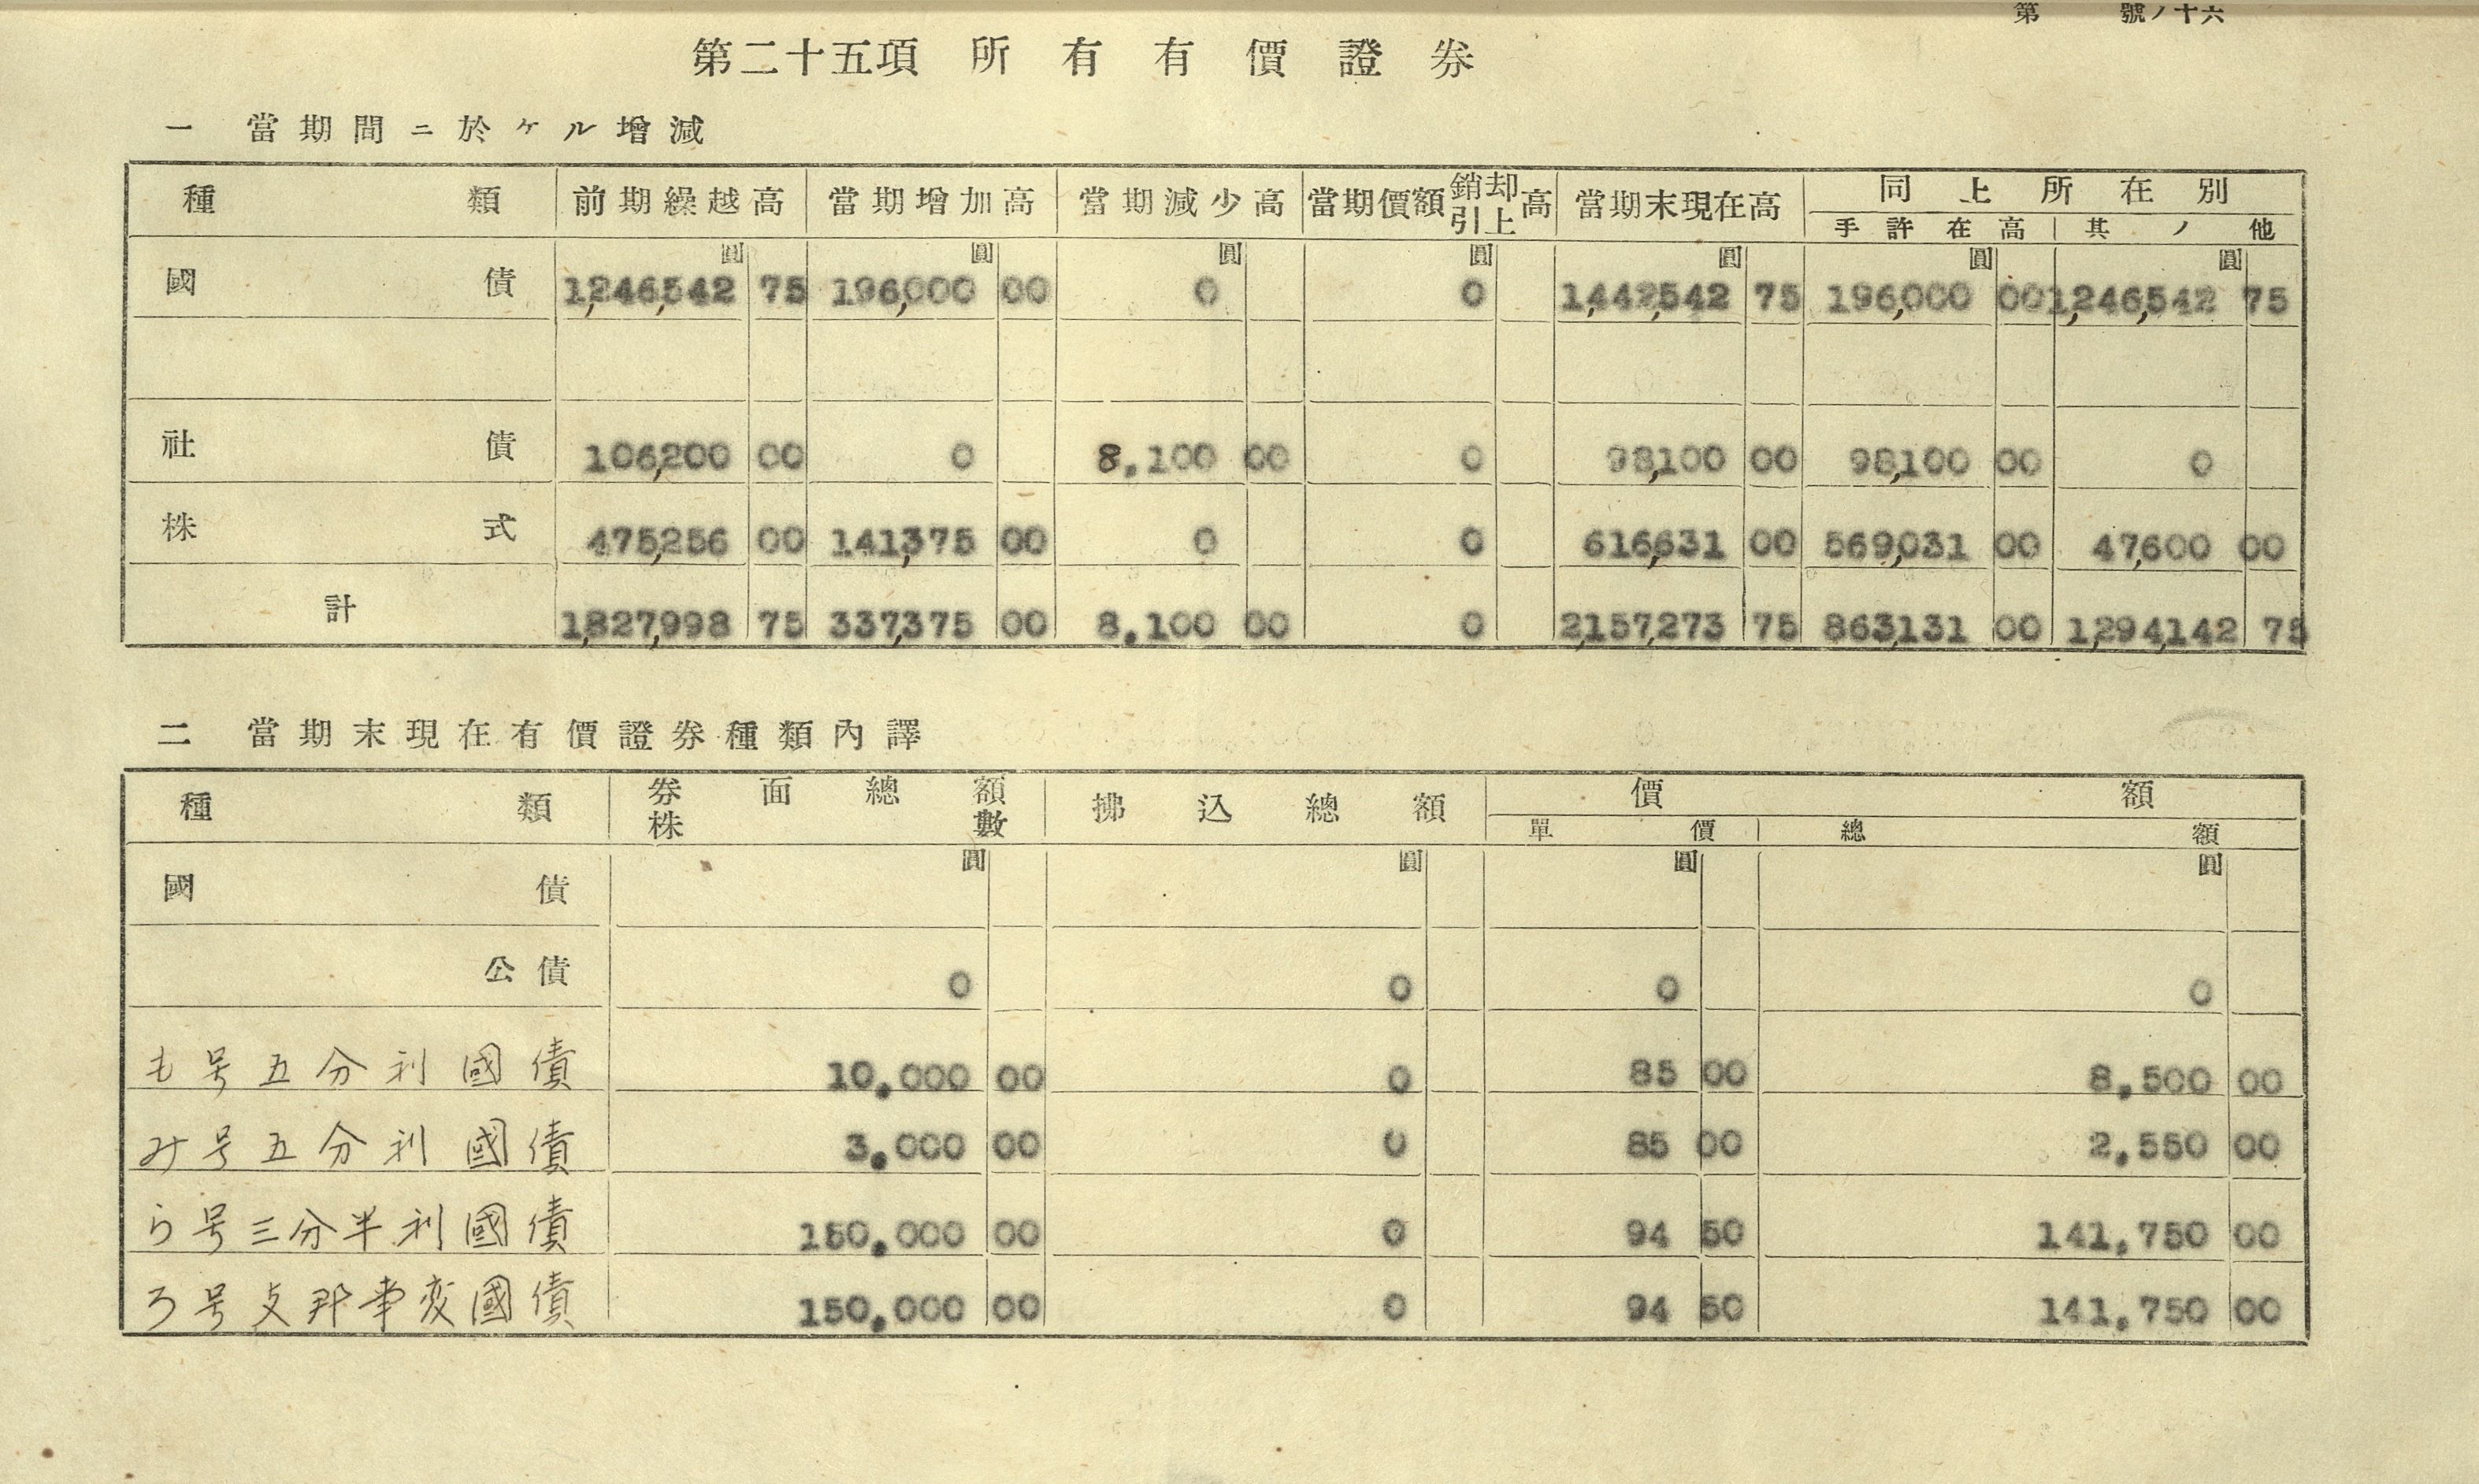 第 號ノ十六
第二十五項 所有有價證券
一 當期間ニ於ケル增減
種類 前期繰越高 當期增加高 當期減少高 當期價額銷却引上高 當期末現在高 同上所在別
手許在高 其ノ他
圓 圓 圓 圓 圓 圓 圓
國債 1,246,542 75 196,000 00 0 0 1,442,542 75 196,000 00 1,246,542 75
社債 106,200 00 0 8,100 00 0 98,100 00 98,100 00 0
株式 475,256 00 141,375 00 0 0 616,631 00 569,031 00 47,600 00
計 1,827,998 75 337,375 00 8,100 00 0 2,157,273 75 863,131 00 1,294,142 75
二 當期末現在有價證券種類內譯
種類 券面總額 拂込總額 價額
株數 單價 總額
圓 圓 圓 圓
國債
公債 0 0 0 0
も号五分利國債 10,000 00 0 85 00 8,500 00
み号五分利國債 3,000 00 0 85 00 2,550 00
ら号三分半利國債 150,000 00 0 94 50 141,750 00
ろ号支那事変國債 150,000 00 0 94 50 141,750 00